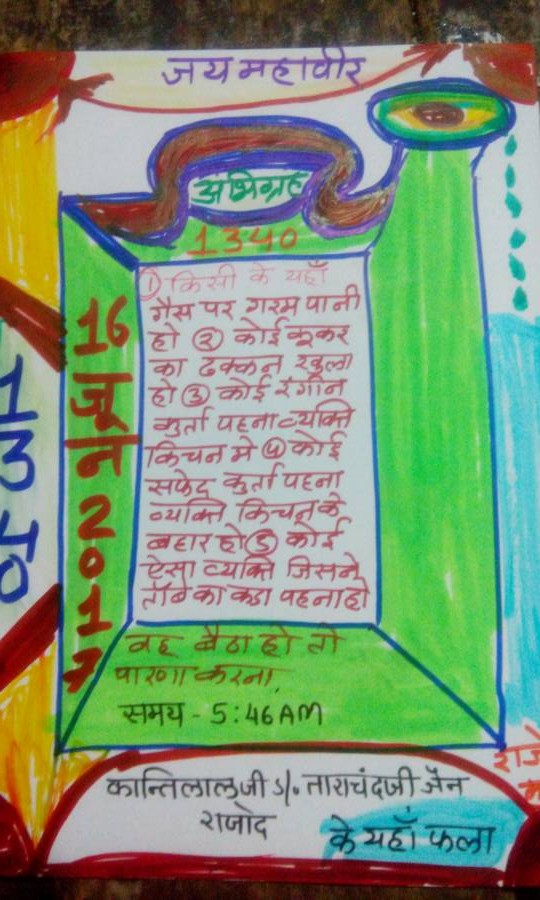 जय महावीर
अभिग्रह
1340
① किसी के यहाँ
गैस पर गरम पानी
हो ② कोई कूकर
का ढक्कन खुला
हो ③ कोई रंगीन
कुर्ता पहना व्यक्ति
किचन मे ④ कोई
सफेद कुर्ता पहना
व्यक्ति किचन के
बहार हो ⑤ कोई
ऐसा व्यक्ति जिसने
ताँबे का कडा पहना हो
वह बैठा हो तो
पारणा करना,
समय - 5:46AM
16 जून 2017
1340
कान्तिलालजी s/o ताराचंदजी जैन
राजोद
के यहाँ फला